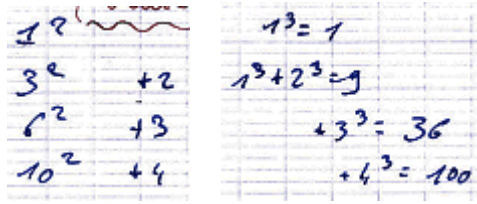 1²
3² +2
6² +3
10² +4
1³ = 1
1³ + 2³ = 9
+ 3³ = 36
+ 4³ = 100